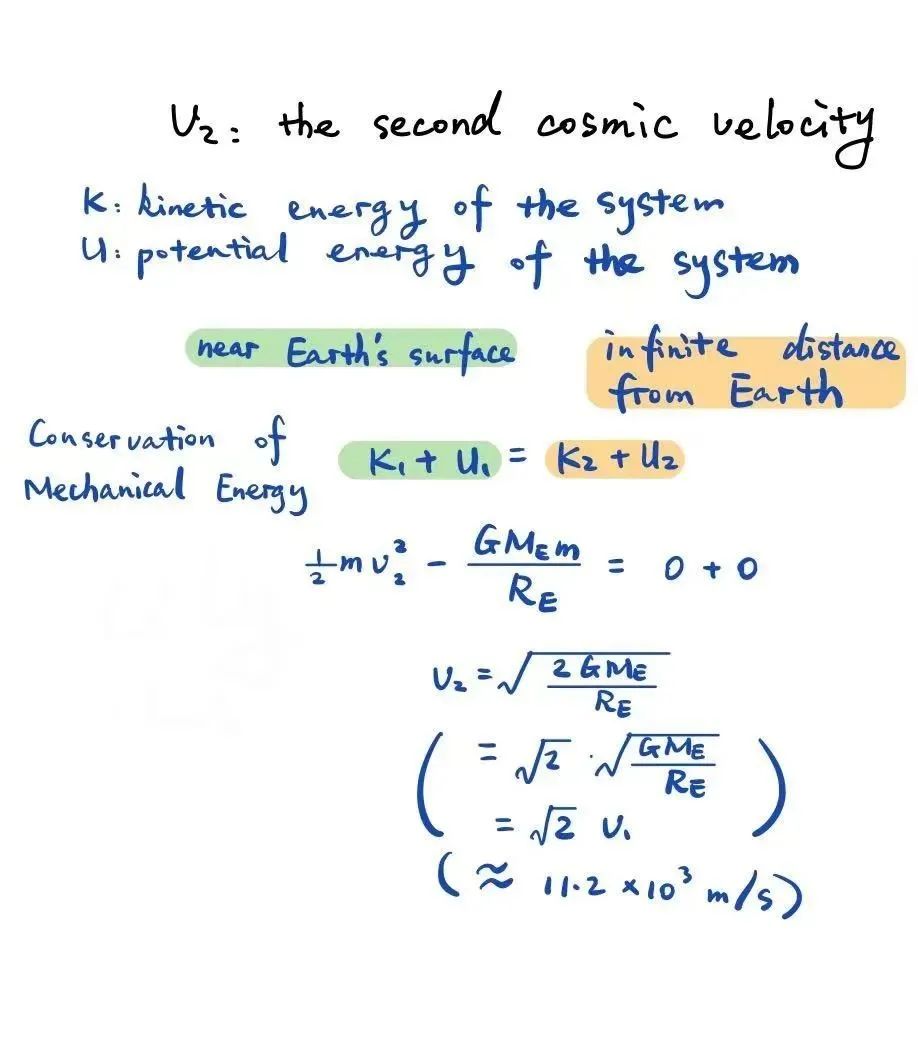 v₂: the second cosmic velocity
K: kinetic energy of the system
U: potential energy of the system
near Earth's surface
infinite distance
from Earth
Conservation of
Mechanical Energy
K₁ + U₁ = K₂ + U₂
½mv₂² - GM_E m / R_E = 0 + 0
v₂ = √(2GM_E / R_E)
( = √2 · √(GM_E / R_E)
= √2 v₁ )
(≈ 11.2 ×10³ m/s)